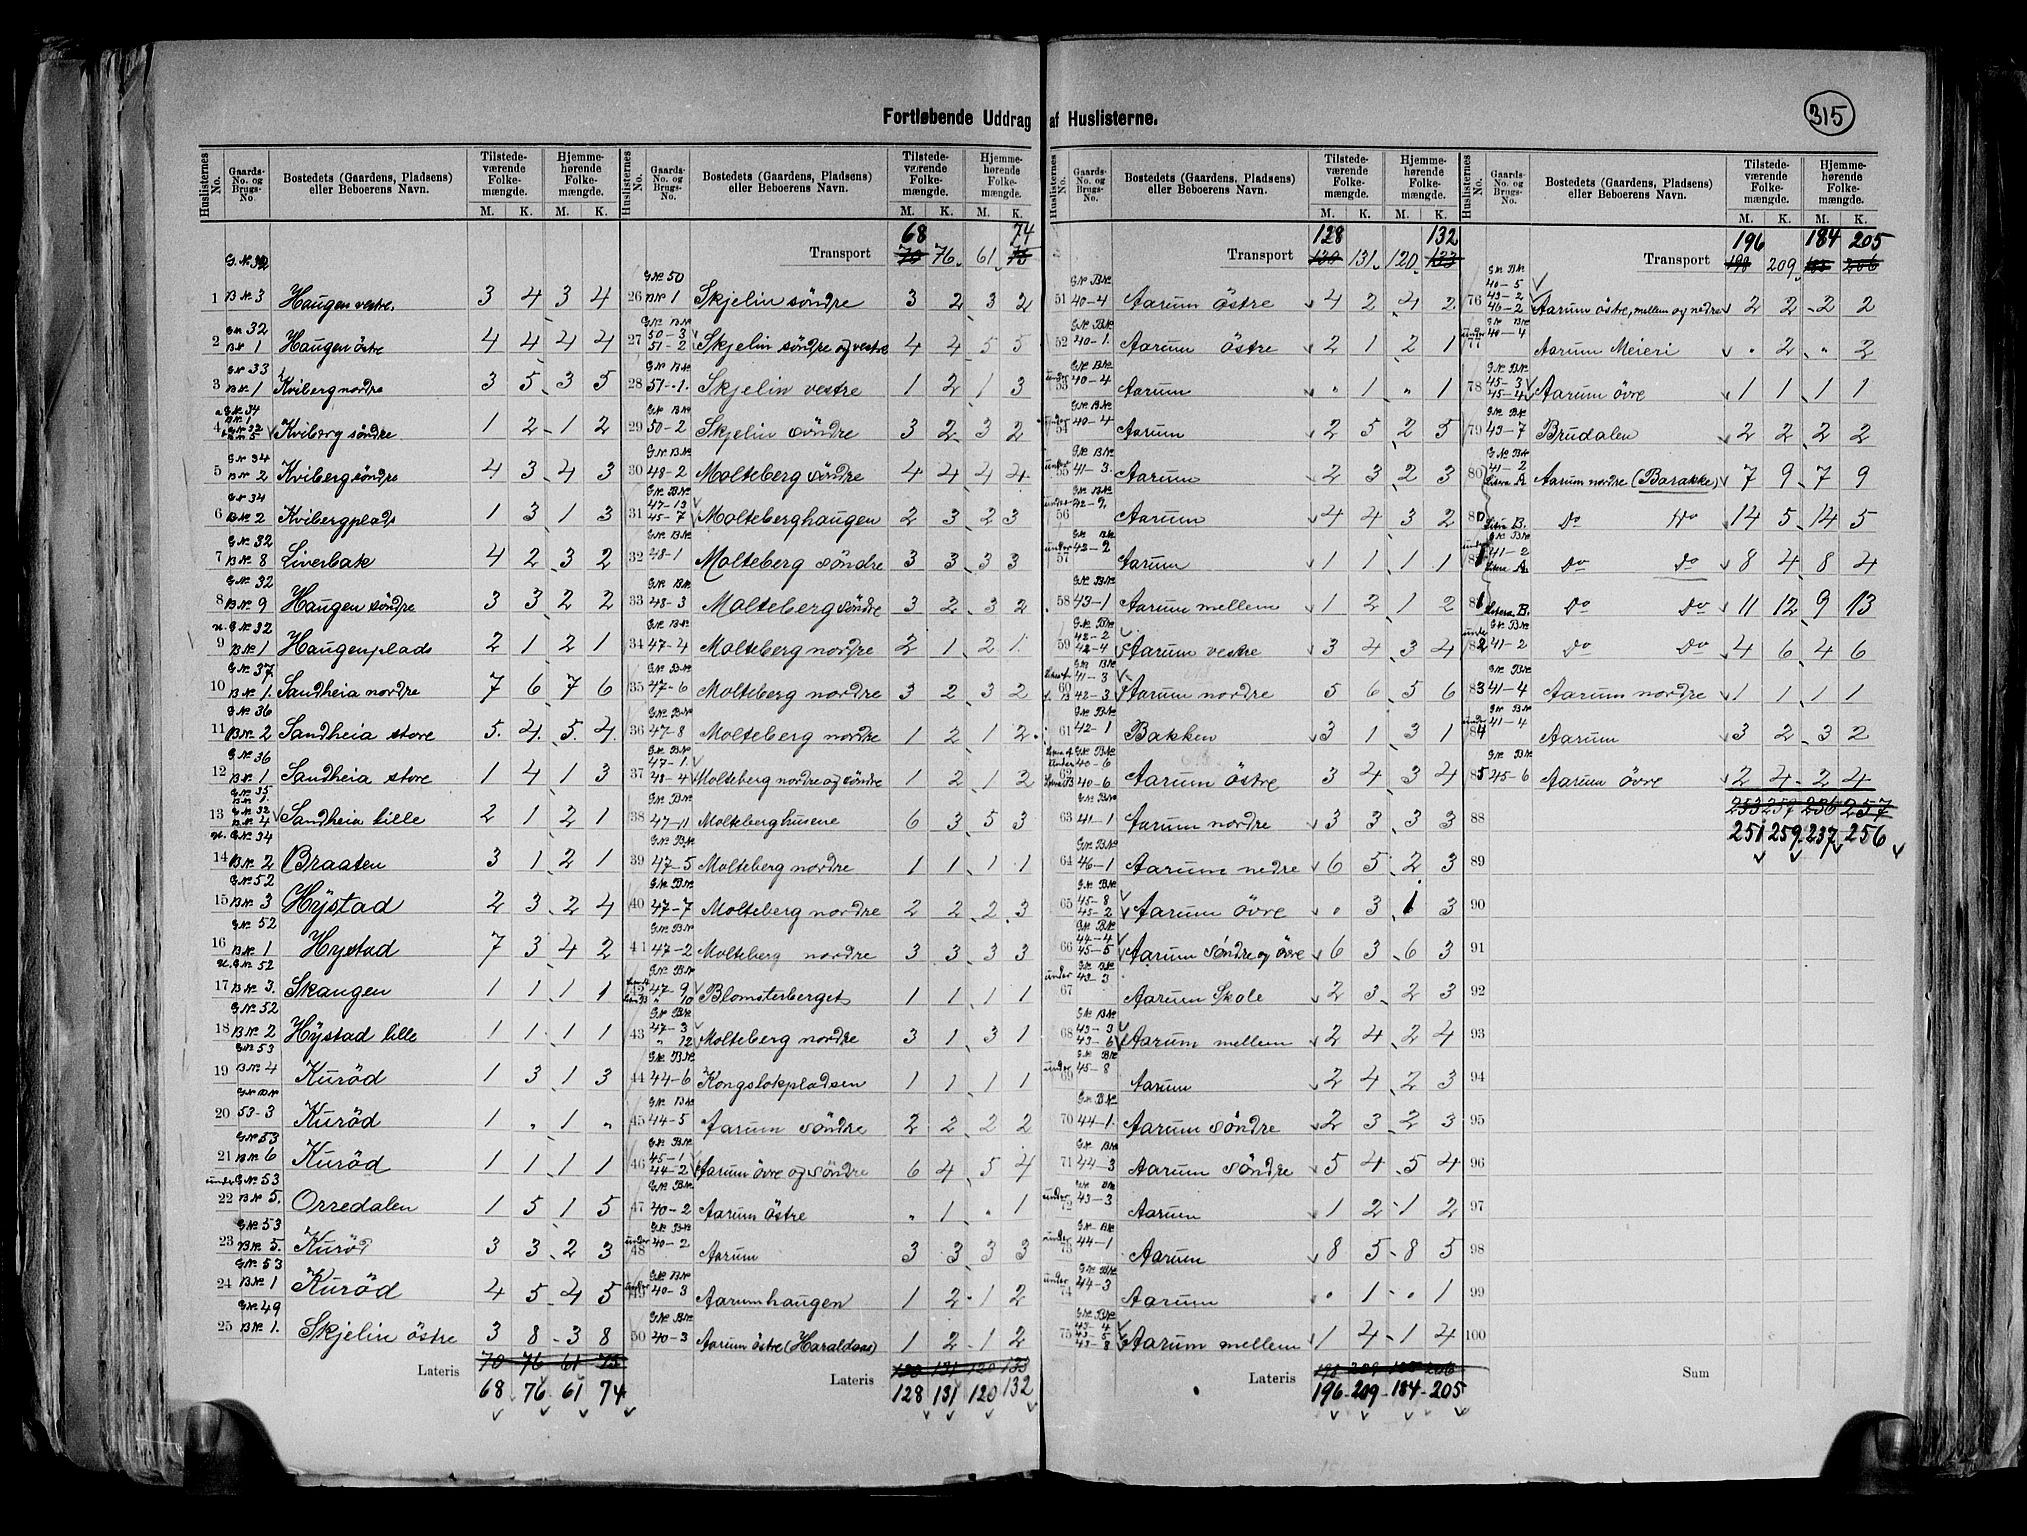 315
Fortløbende Uddrag af Huslisterne.
Huslisternes No. | Gaards-No. og Brugs-No. | Bostedets (Gaardens, Pladsens) eller Beboerens Navn. | Tilstedeværende Folkemængde. M. K. | Hjemmehørende Folkemængde. M. K.
1 G.Nr. 32 B.Nr. 3 Haugen vestre. 3 4 3 4
2 G.Nr. 32 B.Nr. 1 Haugen östre 4 4 4 4
3 G.Nr. 33 B.Nr. 1 Kviberg nordre 3 5 3 5
4 G.Nr. 34 B.Nr. 1 G.Nr. 32 B.Nr. 5 Kviberg söndre 1 2 1 2
5 G.Nr. 34 B.Nr. 2 Kviberg söndre 4 3 4 3
6 G.Nr. 34 B.Nr. 2 Kvibergplads 1 3 1 3
7 G.Nr. 32 B.Nr. 8 Liverbak 4 2 3 2
8 G.Nr. 32 B.Nr. 9 Haugen söndre 3 3 2 2
9 u. G.Nr. 32 B.Nr. 1 Haugenplads 2 1 2 1
10 G.Nr. 37 B.Nr. 1. Sandheia nordre 7 6 7 6
11 G.Nr. 36 B.Nr. 2 Sandheia store 5. 4. 5. 4.
12 G.Nr. 36 B.Nr. 1 Sandheia store 1 4 1 3
13 G.Nr. 35 B.Nr. 1. G.Nr. 32 B.Nr. 4 Sandheia lille 2 1 2 1
14 u. G.Nr. 34 B.Nr. 2 Braaten 3 1 2 1
15 G.Nr. 52 B.Nr. 3 Hÿstad 2 3 2 4
16 G.Nr. 52 B.Nr. 1 Hystad 7 3 4 2
17 u. G.Nr. 52 B.Nr. 3. Skaugen 1 1 1 1
18 G.Nr. 52 B.Nr. 2 Hÿstad lille 1 1 1 1
19 G.Nr. 53 B.Nr. 4 Kuröd 1 3 1 3
20 G.Nr. B.Nr. 53-3 Kuröd 1 „ 1 „
21 G.Nr. 53 B.Nr. 6 Kuröd 1 1 1 1
22 under G.Nr. 53 B.Nr. 5. Orredalen 1 5 1 5
23 G.Nr. 53 B.Nr. 5. Kuröd 3 3 2 3
24 G.Nr. 53 B.Nr. 1 Kuröd 4 5 4 5
25 G.Nr. 49 B.Nr. 1. Skjelin östre 3 8 3 8
70 76 61 75
Lateris 68 76 61 74
68 74
Transport 70 76 61 75
26 G.Nr. 50 B.Nr. 1 Skjelin söndre 3 2 3 2
27 G.Nr. B.Nr. 50-3 51-2 Skjelin söndre og vestre 4 4 5 5
28 G.Nr. B.Nr. 51-1. Skjelin vestre 1 2 1 3
29 G.Nr. B.Nr. 50-2 Skjelin söndre 3 2 3 2
30 G.Nr. B.Nr. 48-2 Molteberg söndre 4 4 4 4
31 G.Nr. B.Nr. 47-13 45-7 Molteberghaugen 2 3 2 3
32 G.Nr. B.Nr. 48-1 Molteberg söndre 3 3 3 3
33 G.Nr. B.Nr. 48-3 Molteberg söndre 3 2 3 2
34 G.Nr. B.Nr. 47-4 Molteberg nordre 2 1 2 1
35 G.Nr. B.Nr. 47-6 Molteberg nordre 3 2 3 2
36 G.Nr. B.Nr. 47-8 Molteberg nordre 1 2 1 2
37 G.Nr. B.Nr. 47-1. 48-4 Molteberg nordre og söndre 1 2 1 2
38 G.Nr. B.Nr. 47-11 Molteberghusene 6 3 5 3
39 G.Nr. B.Nr. 47-5 Molteberg nordre 1 1 1 1
40 G.Nr. B.Nr. 47-7 Molteberg nordre 2 2 2 3
41 G.Nr. B.Nr. 47-2 Molteberg nordre 3 3 3 3
42 G.Nr. B.Nr. 47-9 „ 10 Blomsterberget 1 1 1 1
43 G.Nr. B.Nr. 47-3 „ 12 Molteberg nordre 3 1 3 1
44 G.Nr. B.Nr. 44-6 Kongslokpladsen 1 1 1 1
45 G.Nr. B.Nr. 44-5 Aarum söndre 2 2 2 2
46 G.Nr. B.Nr. 45-1 44-2 Aarum övre og söndre 6 4 5 4
47 G.Nr. B.Nr. 40-2 Aarum östre „ 1 „ 1
48 under G.Nr. B.Nr. 40-2 Aarum 3 3 3 3
49 under G.Nr. B.Nr. 40-3 Aarumhaugen 1 2 1 2
50 G.Nr. B.Nr. 40-3 Aarum östre (Haraldsas) 1 2 1 2
130 131 120 133
Lateris 128 131 120 132
128 132
Transport 130 131 120 133
51 G.Nr. B.Nr. 40-4 Aarum östre 4 2 4 2
52 G.Nr. B.Nr. 40-1. Aarum östre 2 1 2 1
53 under G.Nr. B.Nr. 40-4 Aarum „ 1 „ 1
54 under G.Nr. B.Nr. 40-4 Aarum 2 5 2 5
55 under G.Nr. B.Nr. 41-3. Aarum 2 3 2 3
56 under G.Nr. B.Nr. 42-2. Aarum 4 4 3 2
57 under G.Nr. B.Nr. 42-2 Aarum 1 1 1 1
58 G.Nr. B.Nr. 43-1 Aarum mellem 1 2 1 2
59 G.Nr. B.Nr. 42-2 42-4 Aarum vestre 3 4 3 4
60 G.Nr. B.Nr. 41-3 42-3 Aarum nordre 5 6 5 6
61 G.Nr. B.Nr. 42-1 Bakken 3 1 3 1
62 Litera A under G.Nr. B.Nr. 40-6 Litera B 40-6 Aarum östre 3 4 3 4
63 G.Nr. B.Nr. 41-1 Aarum nordre 3 3 3 3
64 G.Nr. B.Nr. 46-1 Aarum nedre 6 5 2 3
65 G.Nr. B.Nr. 45-8 45-2 Aarum övre „ 3 1 3
66 G.Nr. B.Nr. 44-4 45-5 Aarum söndre og övre 6 3 6 3
67 under G.Nr. B.Nr. 43-3 Aarum Skole 2 3 2 3
68 G.Nr. B.Nr. 43-3 43-6 Aarum mellem 2 4 2 4
69 under G.Nr. B.Nr. 45-8 Aarum 2 4 2 3
70 G.Nr. B.Nr. 44-1. Aarum söndre 2 3 2 3
71 G.Nr. B.Nr. 44-3 Aarum söndre 5 4 5 4
72 under G.Nr. B.Nr. 43-3 Aarum 1 2 1 2
73 under G.Nr. B.Nr. 44-1 Aarum 8 5 8 5
74 under G.Nr. B.Nr. 44-3 Aarum „ 1 „ 1
75 G.Nr. B.Nr. 43-4 43-5 43-8 Aarum mellem 1 4 1 4
198 209 185 206
Lateris 196 209 184 205
196 184 205
Transport 198 209 185 206
76 G.Nr. B.Nr. 40-5 43-2 46-2 Aarum östre, mellem og nedre 2 2 2 2
77 under G.Nr. B.Nr. 40-4 Aarum Meieri „ 2 „ 2
78 G.Nr. B.Nr. 45-3 45-4 Aarum övre 1 1 1 1
79 G.Nr. B.Nr. 43-7 Brudalen 2 2 2 2
80 G.Nr. B.Nr. 41-2 Litera A Aarum nordre (Barakke) 7 9 7 9
80 Litra B. Do Do 14 5 14 5
81 under G.Nr. B.Nr. 41-2 Litra A Do Do 8 4 8 4
81 Litera B. Do Do 11 12 9 13
82 under G.Nr. B.Nr. 41-2 Do Do 4 6 4 6
83 G.Nr. B.Nr. 41-4 Aarum nordre 1 1 1 1
84 under G.Nr. B.Nr. 41-4 Aarum 3 2 3 2
85 G.Nr. B.Nr. 45-6 Aarum övre 2 4 2 4
253 259 238 257
88 251 259 237 256
89
90
91
92
93
94
95
96
97
98
99
100
Sum